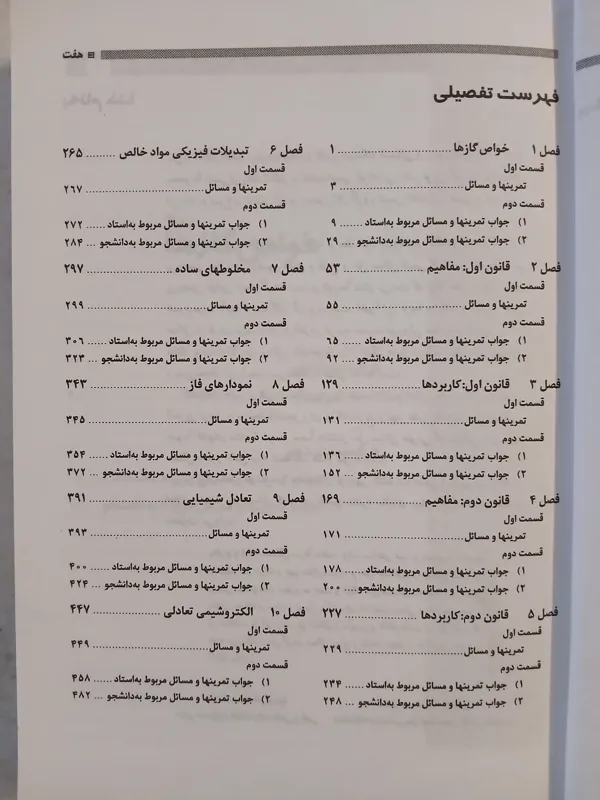 هفت
فهرست تفصیلی
فصل ۱ خواص گازها .................... ۱
قسمت اول
تمرینها و مسائل .................... ۳
قسمت دوم
۱) جواب تمرینها و مسائل مربوط به‌استاد ...... ۹
۲) جواب تمرینها و مسائل مربوط به‌دانشجو ... ۲۹
فصل ۲ قانون اول: مفاهیم .................... ۵۳
قسمت اول
تمرینها و مسائل .................... ۵۵
قسمت دوم
۱) جواب تمرینها و مسائل مربوط به‌استاد ...... ۶۵
۲) جواب تمرینها و مسائل مربوط به‌دانشجو ... ۹۲
فصل ۳ قانون اول: کاربردها .................... ۱۲۹
قسمت اول
تمرینها و مسائل .................... ۱۳۱
قسمت دوم
۱) جواب تمرینها و مسائل مربوط به‌استاد ...... ۱۳۶
۲) جواب تمرینها و مسائل مربوط به‌دانشجو ... ۱۵۲
فصل ۴ قانون دوم: مفاهیم .................... ۱۶۹
قسمت اول
تمرینها و مسائل .................... ۱۷۱
قسمت دوم
۱) جواب تمرینها و مسائل مربوط به‌استاد ...... ۱۷۸
۲) جواب تمرینها و مسائل مربوط به‌دانشجو .... ۲۰۰
فصل ۵ قانون دوم: کاربردها .................... ۲۲۷
قسمت اول
تمرینها و مسائل .................... ۲۲۹
قسمت دوم
۱) جواب تمرینها و مسائل مربوط به‌استاد ...... ۲۳۴
۲) جواب تمرینها و مسائل مربوط به‌دانشجو ... ۲۴۸
فصل ۶ تبدیلات فیزیکی مواد خالص ......... ۲۶۵
قسمت اول
تمرینها و مسائل .................... ۲۶۷
قسمت دوم
۱) جواب تمرینها و مسائل مربوط به‌استاد ...... ۲۷۲
۲) جواب تمرینها و مسائل مربوط به‌دانشجو ... ۲۸۴
فصل ۷ مخلوطهای ساده .................... ۲۹۷
قسمت اول
تمرینها و مسائل .................... ۲۹۹
قسمت دوم
۱) جواب تمرینها و مسائل مربوط به‌استاد ...... ۳۰۶
۲) جواب تمرینها و مسائل مربوط به‌دانشجو ... ۳۲۳
فصل ۸ نمودارهای فاز .................... ۳۴۳
قسمت اول
تمرینها و مسائل .................... ۳۴۵
قسمت دوم
۱) جواب تمرینها و مسائل مربوط به‌استاد ...... ۳۵۴
۲) جواب تمرینها و مسائل مربوط به‌دانشجو ... ۳۷۲
فصل ۹ تعادل شیمیایی .................... ۳۹۱
قسمت اول
تمرینها و مسائل .................... ۳۹۳
قسمت دوم
۱) جواب تمرینها و مسائل مربوط به‌استاد ...... ۴۰۰
۲) جواب تمرینها و مسائل مربوط به‌دانشجو ... ۴۲۴
فصل ۱۰ الکتروشیمی تعادلی .................... ۴۴۷
قسمت اول
تمرینها و مسائل .................... ۴۴۹
قسمت دوم
۱) جواب تمرینها و مسائل مربوط به‌استاد ...... ۴۵۸
۲) جواب تمرینها و مسائل مربوط به‌دانشجو ... ۴۸۲